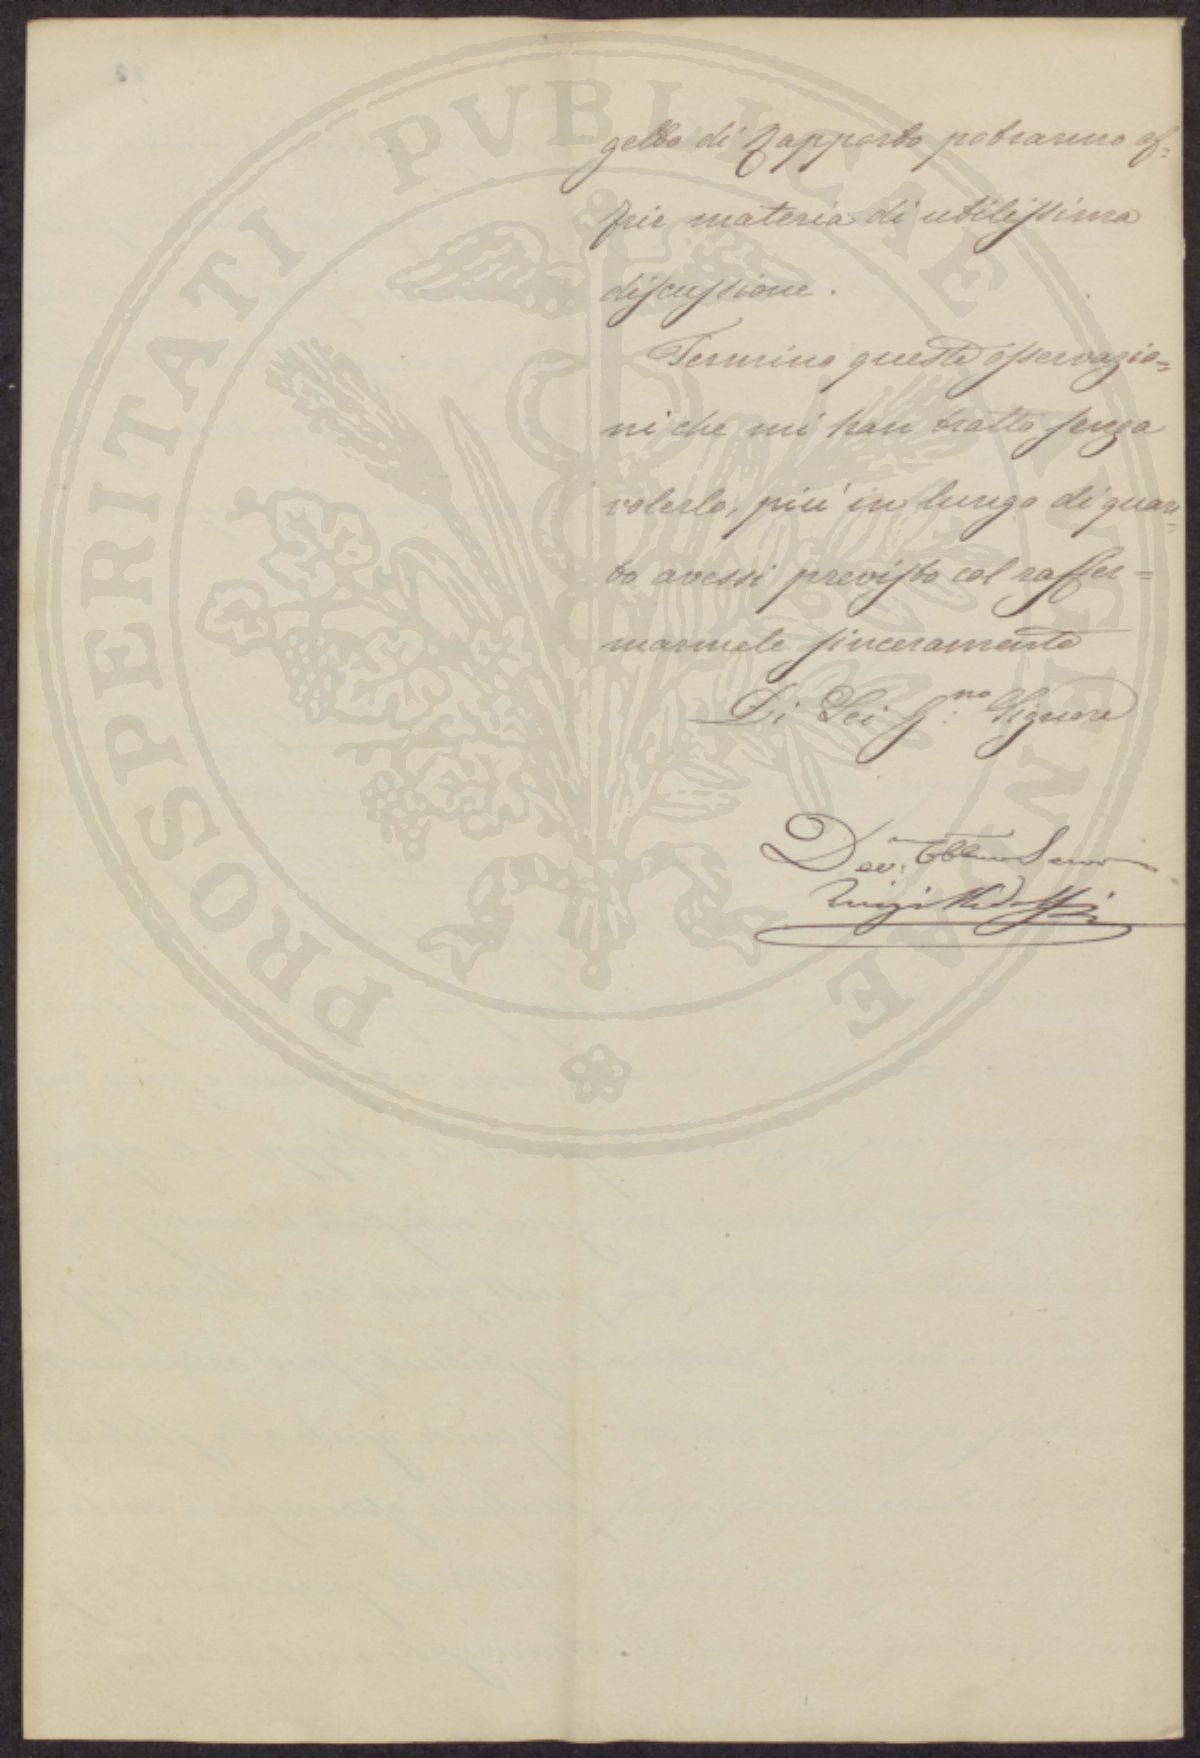 PROSPERITATI PVBLICAE AVGENDAE
getto di Rapporto potranno of=
frir materia di utilissima
discussione.
Termino queste osservazio=
ni che mi han tratto senza
volerlo, più in lungo di quan=
to avessi previsto col raffer=
marmele sinceramente
Di Lei Ill.mo Signore
Dev. Obbmo Servo
Luigi Ridolfi